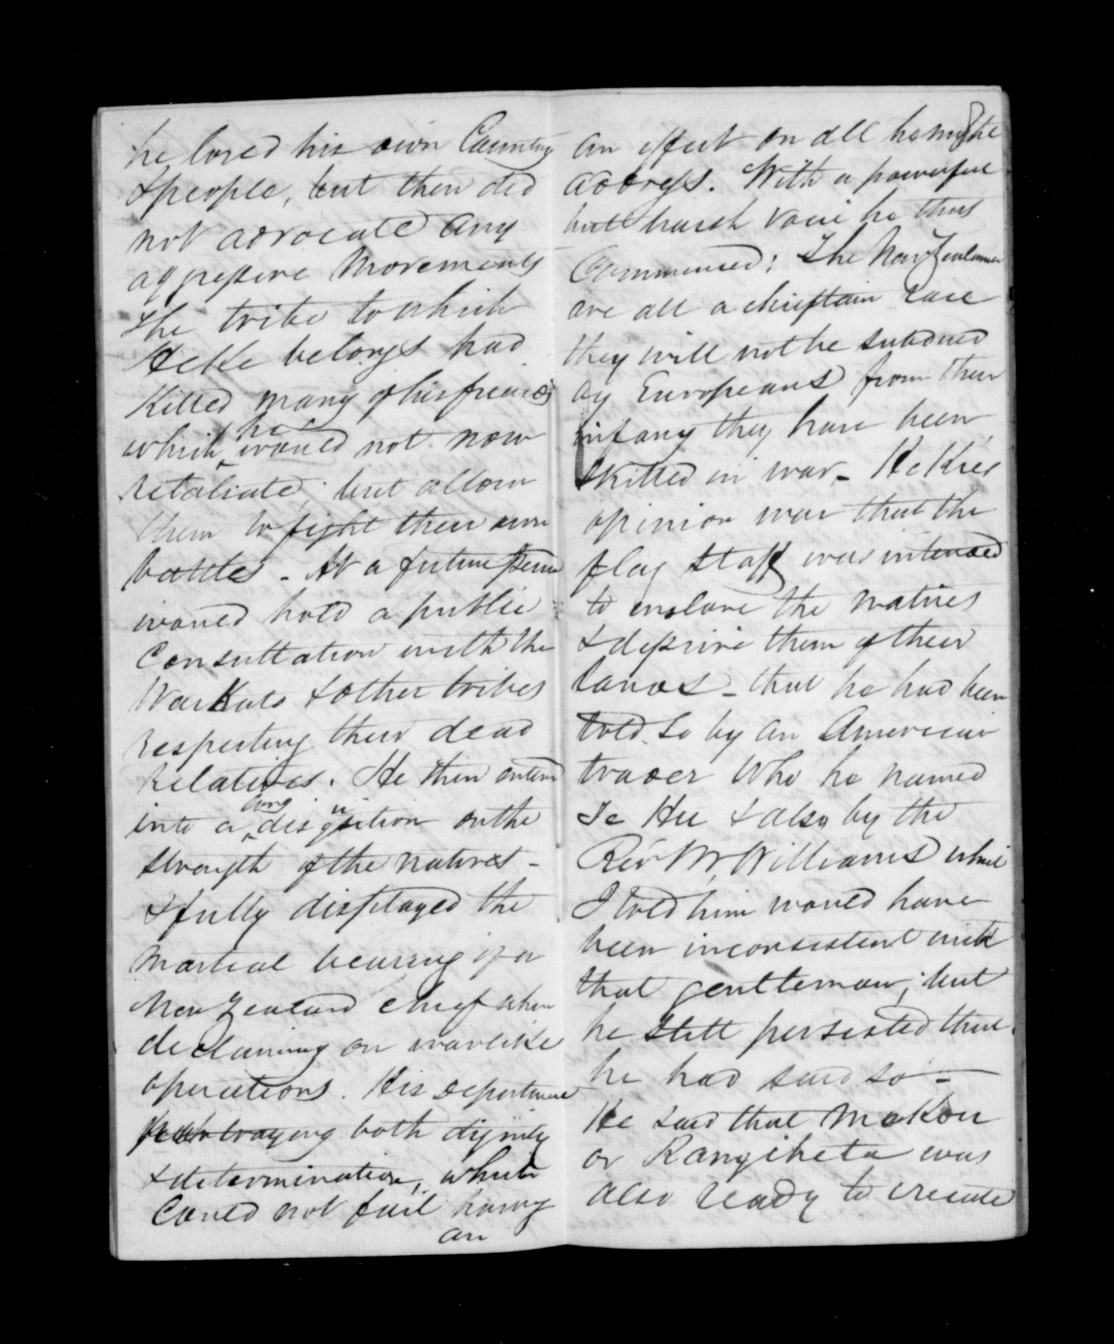 he loved his own Country
& people, but then did
not advocate any
aggressive movements
the tribe to which
Heke belongs had
killed many of his friends
which he would not now
retaliate but allow
them to fight their own
battles - At a future
would hold a public
Consultation with the
Waikato & other tribes
respecting their dead
relatives. He then entered
into a long disquisition on the
strength of the natives -
& fully displayed the
martial bearing of a
New Zealand Chief when
declaiming on warlike
operations. His deportment
portraying both dignity
& determination, which
Could not fail having
an
an effect on all he might
address. With a powerful
but harsh voice he thus
Commenced; The New Zealanders
are all a chieftain race
they will not be subdued
by Europeans from their
infancy they have been
skilled in war - He Kies
opinion was that the
flag staff was intended
to enslave the natives
& deprive them of their
lands - that he had been
told so by an American
trader who he named
Te Hu & also by the
Revd W. Williams which
I told him would have
been inconsistent with
that gentleman; but
he still persisted that
he had said so -
He said that Mokou
or Rangiheta was
also ready to create